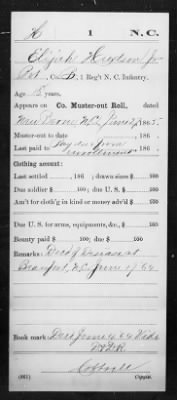 H 1 N.C.
Elijah Hudson Jr
Pvt., Co. B, 1 Reg't N. C. Infantry.
Age 18 years.
Appears on Co. Muster-out Roll, dated
New Berne, N.C., June 27, 1865.
Muster-out to date , 186 .
Last paid to pay due from
enrollment , 186 .
Clothing account:
Last settled , 186 ; drawn since $ 100
Due soldier $ 100; due U. S. $ 100
Am't for cloth'g in kind or money adv'd $ 100
Due U. S. for arms, equipments, &c., $ 100
Bounty paid $ 100; due $ 100
Remarks: Died of
Beaufort, N.C., June 17 64
Book mark: Died June 4, 64
(861) Copyist.